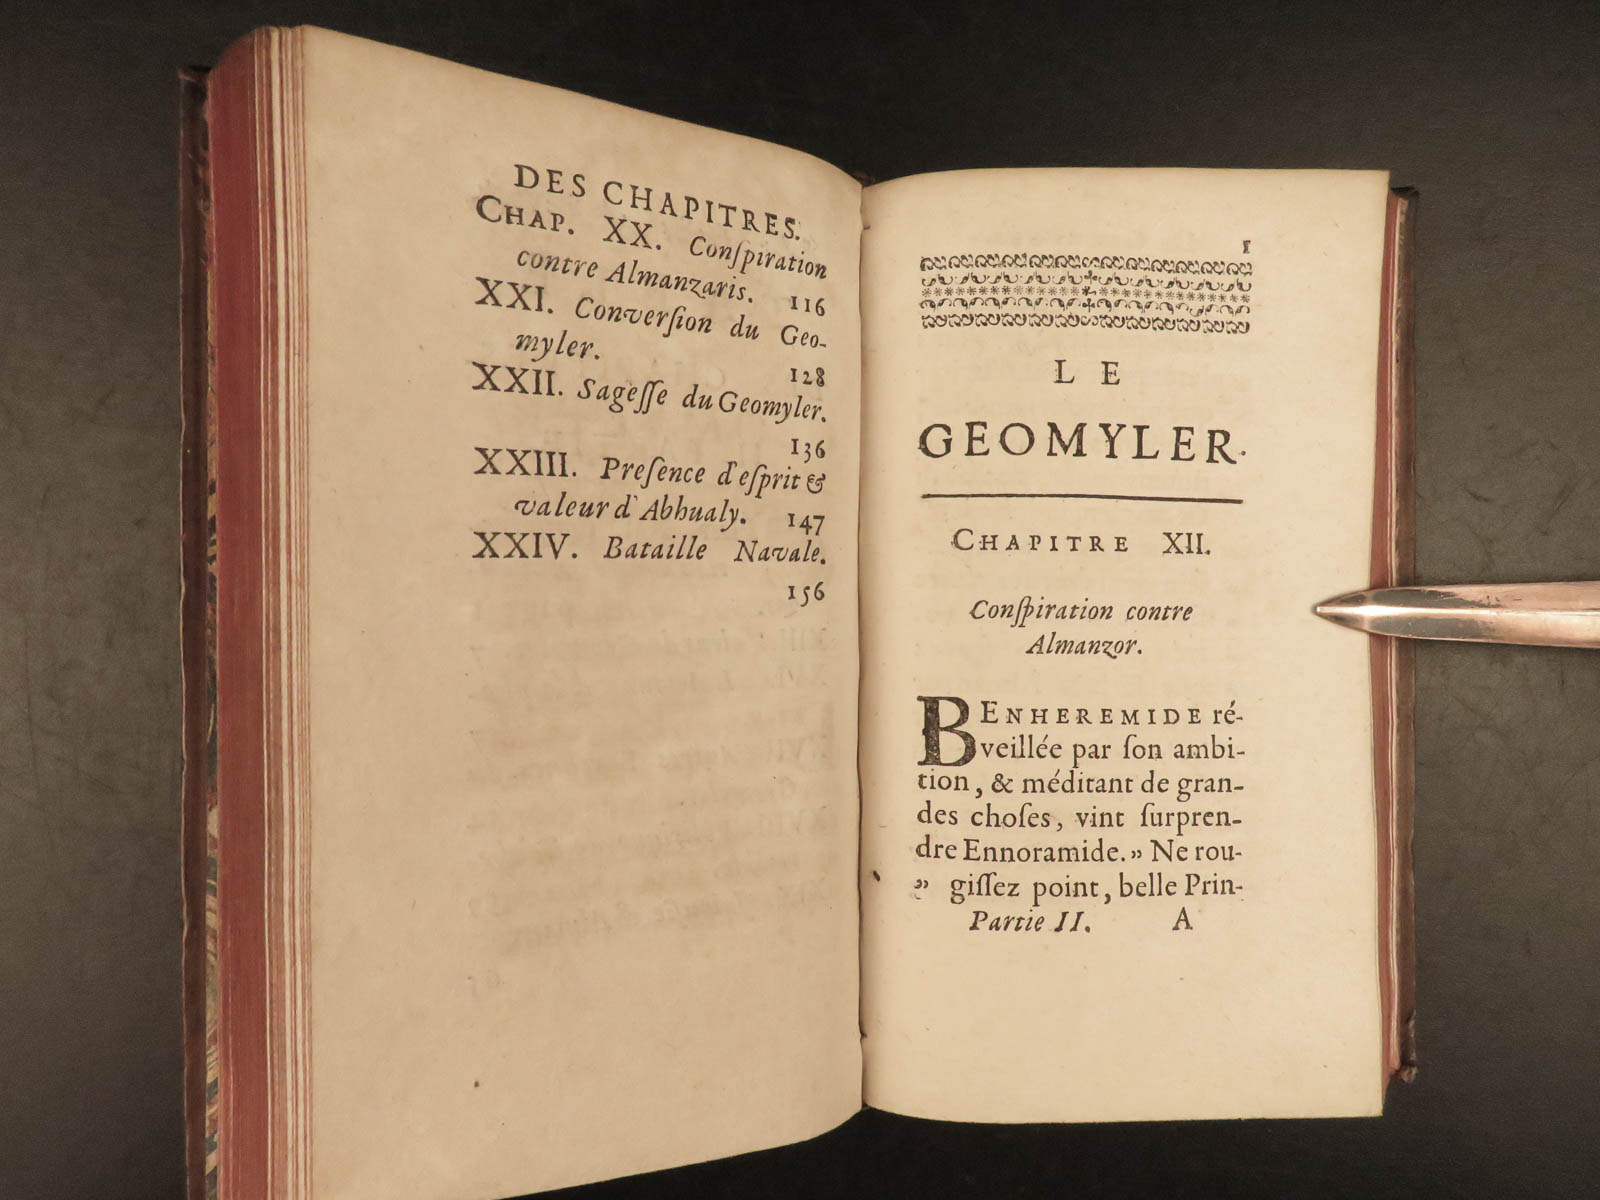 DES CHAPITRES.
CHAP. XX. Conſpiration
contre Almanzaris. 116
XXI. Converſion du Geo-
myler. 128
XXII. Sageſſe du Geomyler.
136
XXIII. Preſence d'eſprit &
valeur d'Abhualy. 147
XXIV. Bataille Navale.
156
1
LE
GEOMYLER.
CHAPITRE XII.
Conſpiration contre
Almanzor.
BENHEREMIDE ré-
veillée par ſon ambi-
tion, & méditant de gran-
des choſes, vint ſurpren-
dre Ennoramide. „ Ne rou-
„ giſſez point, belle Prin-
Partie II. A